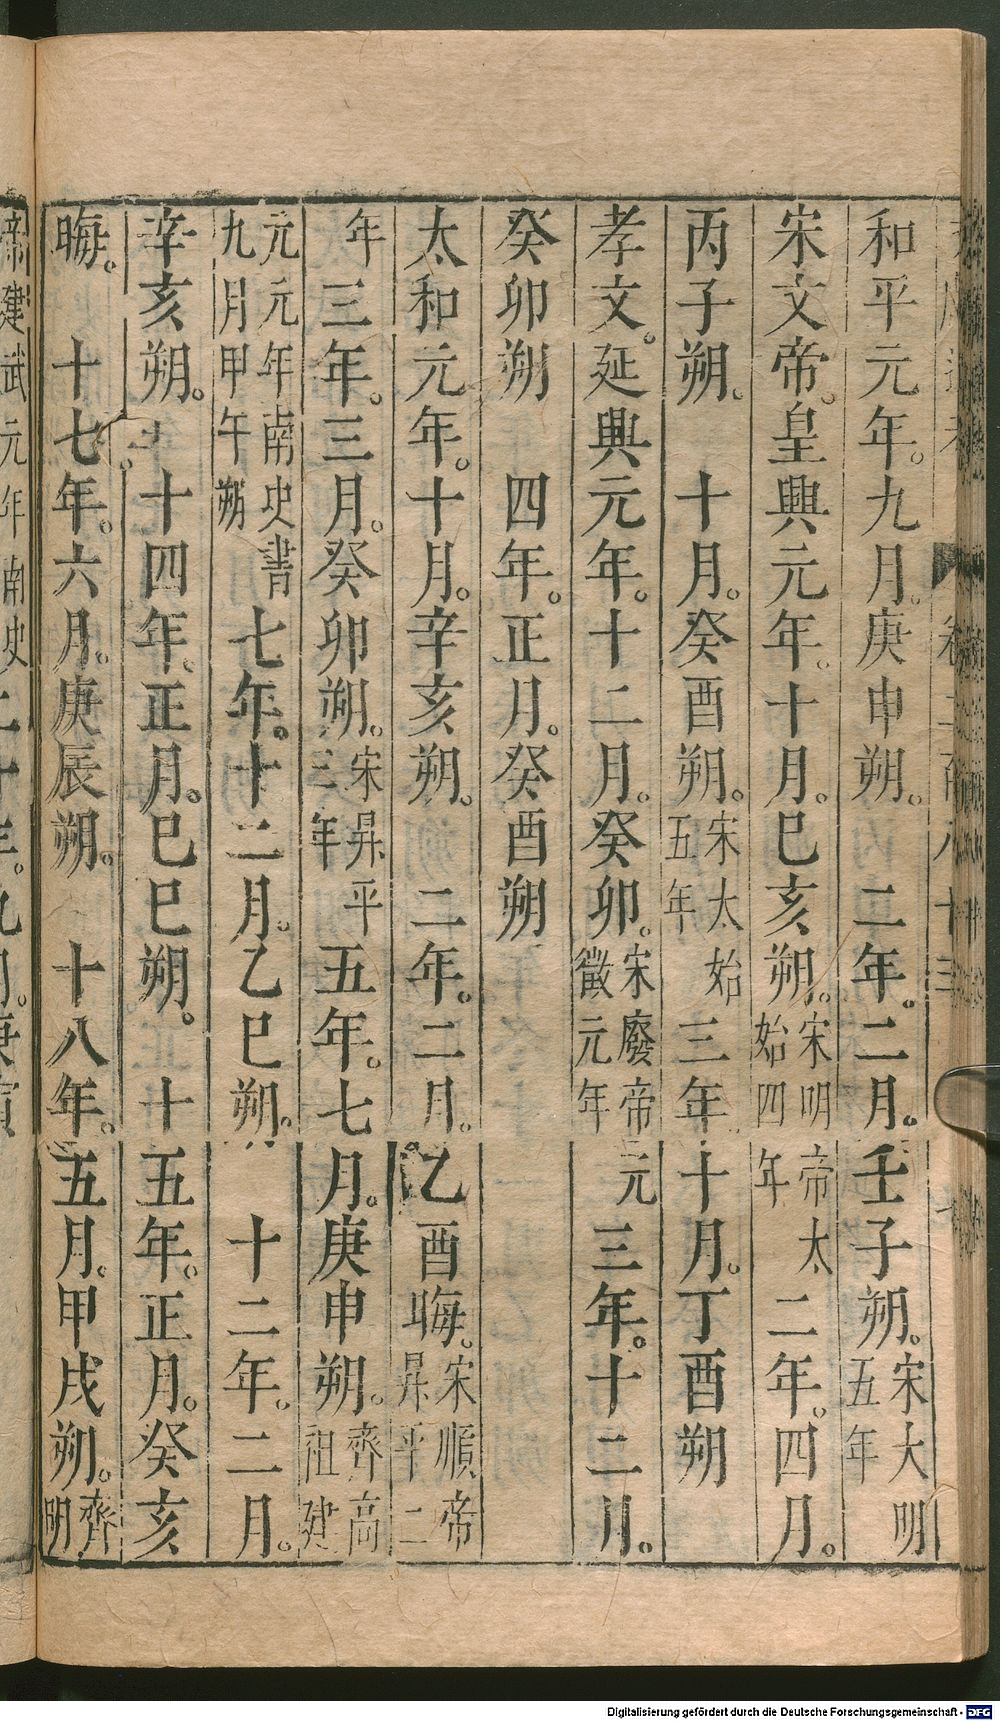 和平元年。九月。庚申朔。　二年。二月。壬子朔。宋大明五年
宋文帝。皇興元年。十月。巳亥朔。宋明帝太始四年　二年。四月。
丙子朔。　十月。癸酉朔。宋太始五年　三年十月。丁酉朔
孝文。延興元年。十二月。癸卯。宋廢帝元徽元年　三年。十二月。
癸卯朔　四年。正月。癸酉朔
太和元年。十月。辛亥朔。　二年。二月。乙酉晦。宋順帝昇平二
年　三年。三月。癸卯朔。宋昇平三年　五年。七月。庚申朔。齊高祖建
元元年南史書九月甲午朔　七年。十二月。乙巳朔。　十二年。二月。
辛亥朔。　十四年。正月。巳巳朔。　十五年。正月。癸亥
晦。　十七年。六月。庚辰朔。　十八年。五月。甲戌朔。齊明
帝建武元年南史二十年。九月。庚寅
Digitalisierung gefördert durch die Deutsche Forschungsgemeinschaft - DFG